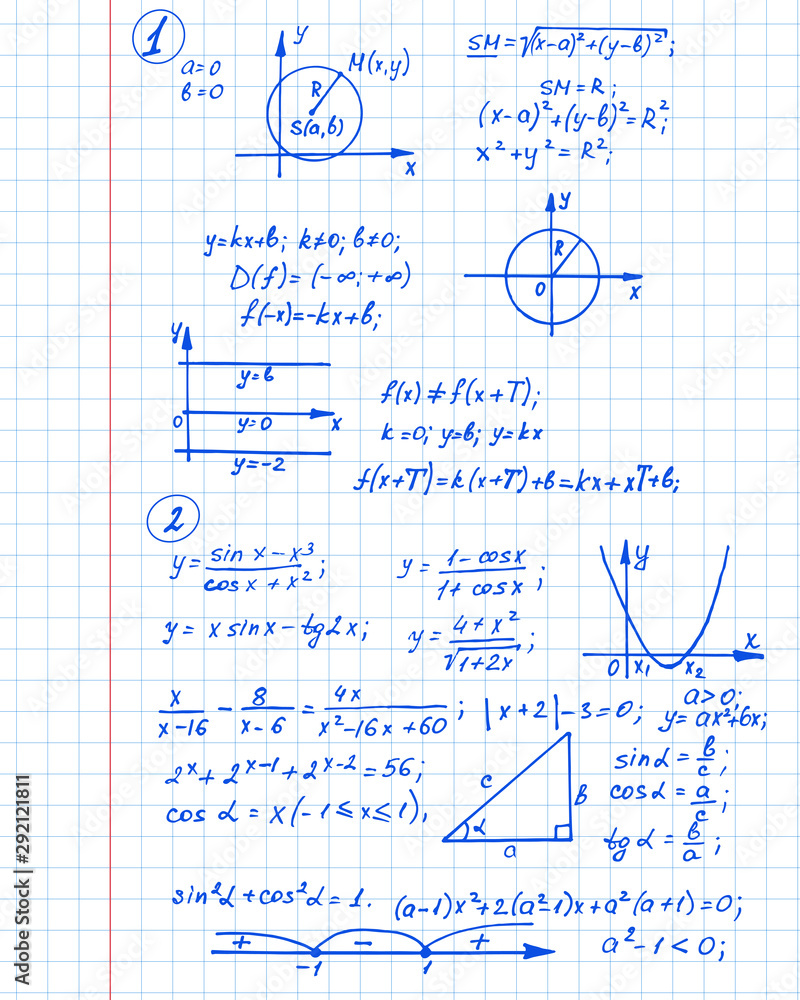 1
a=0
в=0
y
M(x,y)
R
S(a,в)
x
SM=√(x-a)²+(y-в)²;
SM=R;
(x-a)²+(y-в)²=R²;
x²+y²=R²;
y
R
0
x
y=kx+в; k≠0; в≠0;
D(f)=(-∞;+∞)
f(-x)=-kx+в;
y
y=в
0
y=0
x
y=-2
f(x)≠f(x+T);
k=0; y=в; y=kx
f(x+T)=k(x+T)+в=kx+xT+в;
2
y=(sin x-x³)/(cos x+x²);
y=(1-cosx)/(1+cosx);
y=x sinx-tg2x;
y=(4+x²)/√1+2x;
y
x
0 x₁ x₂
a>0;
y=ax²+6x;
x/(x-16) - 8/(x-6) = 4x/(x²-16x+60); |x+2|-3=0;
2ˣ+2ˣ⁻¹+2ˣ⁻²=56;
cos α=x(-1≤x≤1),
c
в
α
a
sinα=в/c;
cosα=a/c;
tgα=в/a;
sin²α+cos²α=1.
(a-1)x²+2(a²-1)x+a²(a+1)=0;
+ - +
-1 1
a²-1<0;
Adobe Stock | #292121811